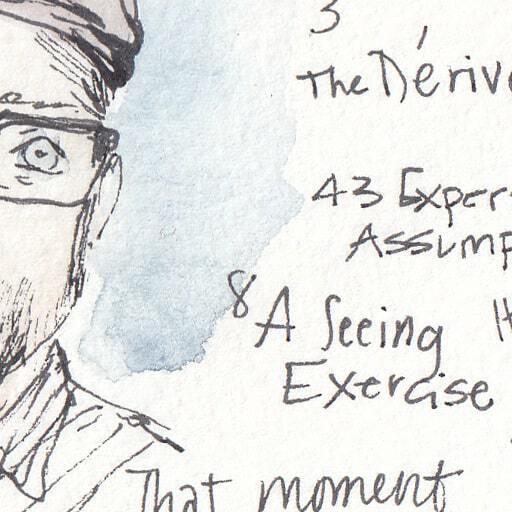 3
The Dérive
43 Exper
Assump
8 A Seeing
Exercise
That moment